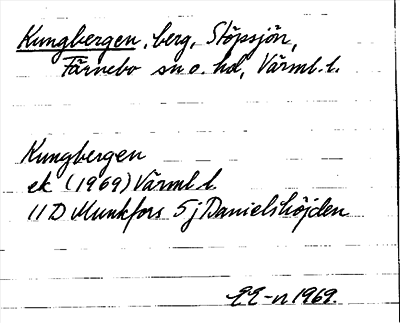 Kungbergen, berg, Stöpsjön,
Färnebo sn o. hd, Värml. l.
Kungbergen
ek (1969) Värml. l.
11 D Munkfors 5 j Danielshöjden
EE-n 1969.